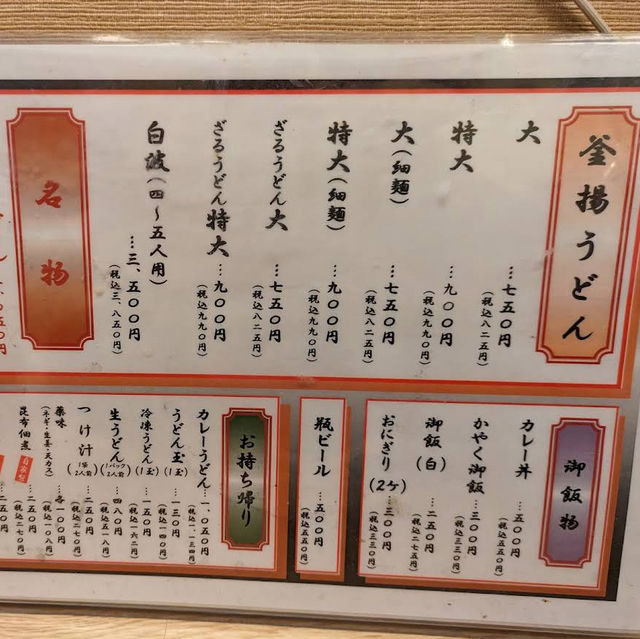 釜揚うどん
大 …七五〇円
(税込八二五円)
特大 …九〇〇円
(税込九九〇円)
大(細麺) …七五〇円
(税込八二五円)
特大(細麺) …九〇〇円
(税込九九〇円)
ざるうどん大 …七五〇円
(税込八二五円)
ざるうどん特大 …九〇〇円
(税込九九〇円)
白波(四〜五人用) …三、五〇〇円
(税込三、八五〇円)
名物
御飯物
カレー丼 …五〇〇円
(税込五五〇円)
かやく御飯 …三〇〇円
(税込三三〇円)
御飯(白) …二五〇円
(税込二七五円)
おにぎり(2ケ) …三〇〇円
(税込三三〇円)
瓶ビール …五〇〇円
(税込五五〇円)
お持ち帰り
カレーうどん …一、〇五〇円
(税込一、一三四円)
うどん玉(1玉) …一三〇円
(税込一四〇円)
冷凍うどん(1玉) …一五〇円
(税込一六二円)
生うどん(1パック2人前) …四八〇円
(税込五一八円)
つけ汁(1袋2人前) …二五〇円
(税込二七〇円)
薬味 …各一〇〇円
(ネギ・生姜・天カス)
(税込一〇八円)
昆布佃煮 …二五〇円
(税込二七〇円)